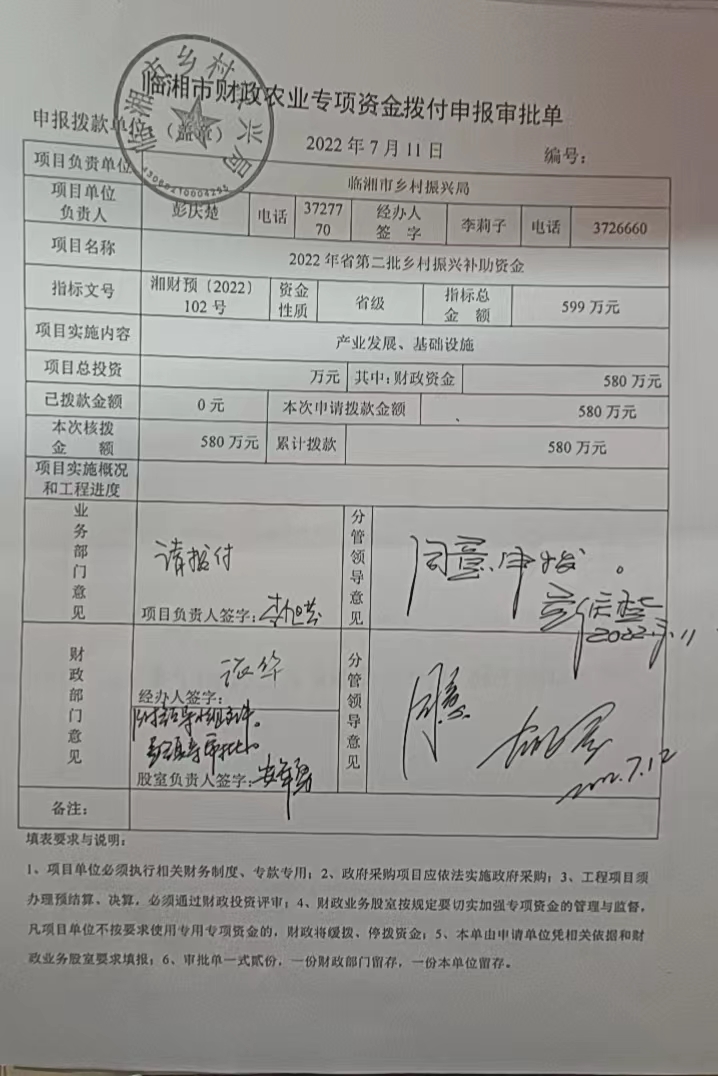 临湘市财政农业专项资金拨付申报审批单
申报拨款单位：（盖章） 2022 年 7 月 11 日 编号：
临湘市乡村振兴局
项目负责单位 临湘市乡村振兴局
项目单位负责人 彭庆楚 电话 3727770 经办人签字 李莉子 电话 3726660
项目名称 2022 年省第二批乡村振兴补助资金
指标文号 湘财预〔2022〕102 号 资金性质 省级 指标总金额 599 万元
项目实施内容 产业发展、基础设施
项目总投资 万元 其中：财政资金 580 万元
已拨款金额 0 元 本次申请拨款金额 580 万元
本次核拨金额 580 万元 累计拨款 580 万元
项目实施概况和工程进度
业务部门意见 请拨付 分管领导意见 同意申拨。
项目负责人签字： 彭庆楚
2022.7.11
财政部门意见 分管领导意见 同意
经办人签字：
股室负责人签字： 2022.7.12
备注：
填表要求与说明：
1、项目单位必须执行相关财务制度、专款专用；2、政府采购项目应依法实施政府采购；3、工程项目须
办理预结算、决算，必须通过财政投资评审；4、财政业务股室按规定要切实加强专项资金的管理与监督，
凡项目单位不按要求使用专用专项资金的，财政将缓拨、停拨资金；5、本单由申请单位凭相关依据和财
政业务股室要求填报；6、审批单一式贰份，一份财政部门留存，一份本单位留存。